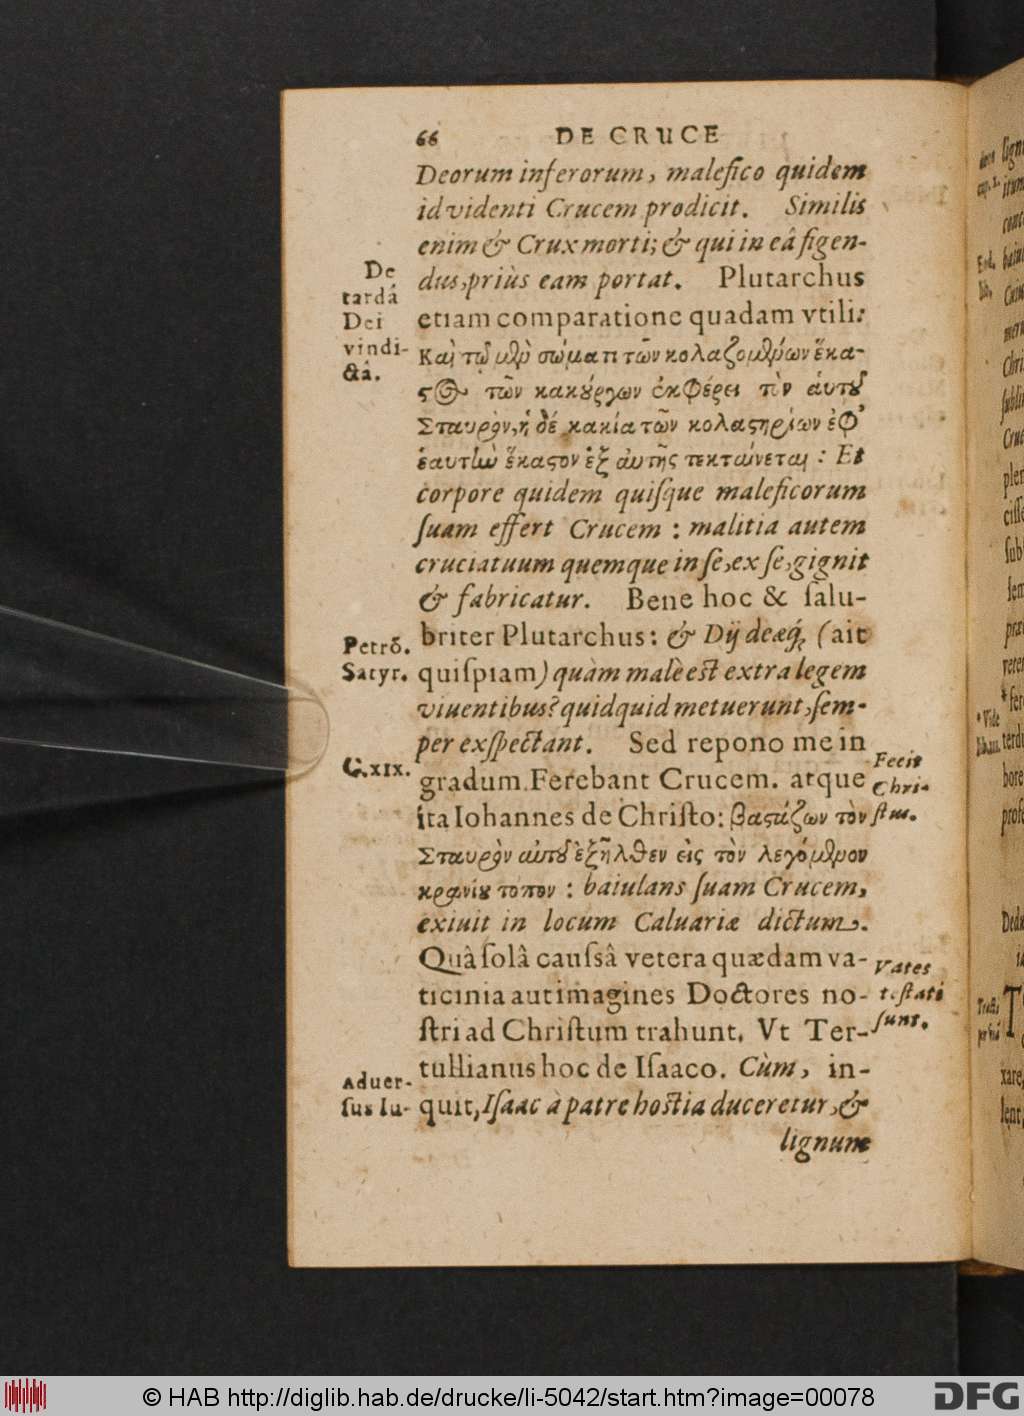 66 DE CRUCE
Deorum inferorum, malefico quidem
id videnti Crucem prodicit. Similis
enim & Crux morti; & qui in eâ figen-
dus, priùs eam portat. Plutarchus
De
tardâ
Dei
vindi-
ctâ.
etiam comparatione quadam vtili:
Καὶ τῷ μὲν σώματι τῶν κολαζομένων ἕκα-
ϛος τῶν κακούργων ἐκφέρει τὸν ἁυτοῦ
Σταυρὸν, ἡ δέ κακία τῶν κολαϛηρίων ἐφ'
ἑαυτὴν ἕκαϛον ἐξ αὐτῆς τεκταίνεται: Et
corpore quidem quiſque maleficorum
ſuam effert Crucem: malitia autem
cruciatuum quemque in ſe, ex ſe, gignit
& fabricatur. Bene hoc & ſalu-
Petrō.
Satyr.
briter Plutarchus: & Dij deæq́; (ait
quiſpiam) quàm malè est extra legem
viuentibus? quidquid metuerunt, ſem-
per exſpectant. Sed repono me in
C.xix.
gradum. Ferebant Crucem. atque
Fecit
Chri-
stus.
ita Iohannes de Chriſto: βαϛάζων τὸν
Σταυρὸν αὑτοῦ ἐξῆλθεν εἰς τὸν λεγόμενον
κρανίου τόπον: baiulans ſuam Crucem,
exiuit in locum Caluariæ dictum.
Quâ ſolâ cauſsâ vetera quædam va-
Vates
teſtati
ſunt.
ticinia aut imagines Doctores no-
ſtri ad Chriſtum trahunt. Vt Ter-
tullianus hoc de Iſaaco. Cùm, in-
Aduer-
ſus Iu-
quit, Iſaac à patre hostia duceretur, &
lignum
© HAB http://diglib.hab.de/drucke/li-5042/start.htm?image=00078
DFG